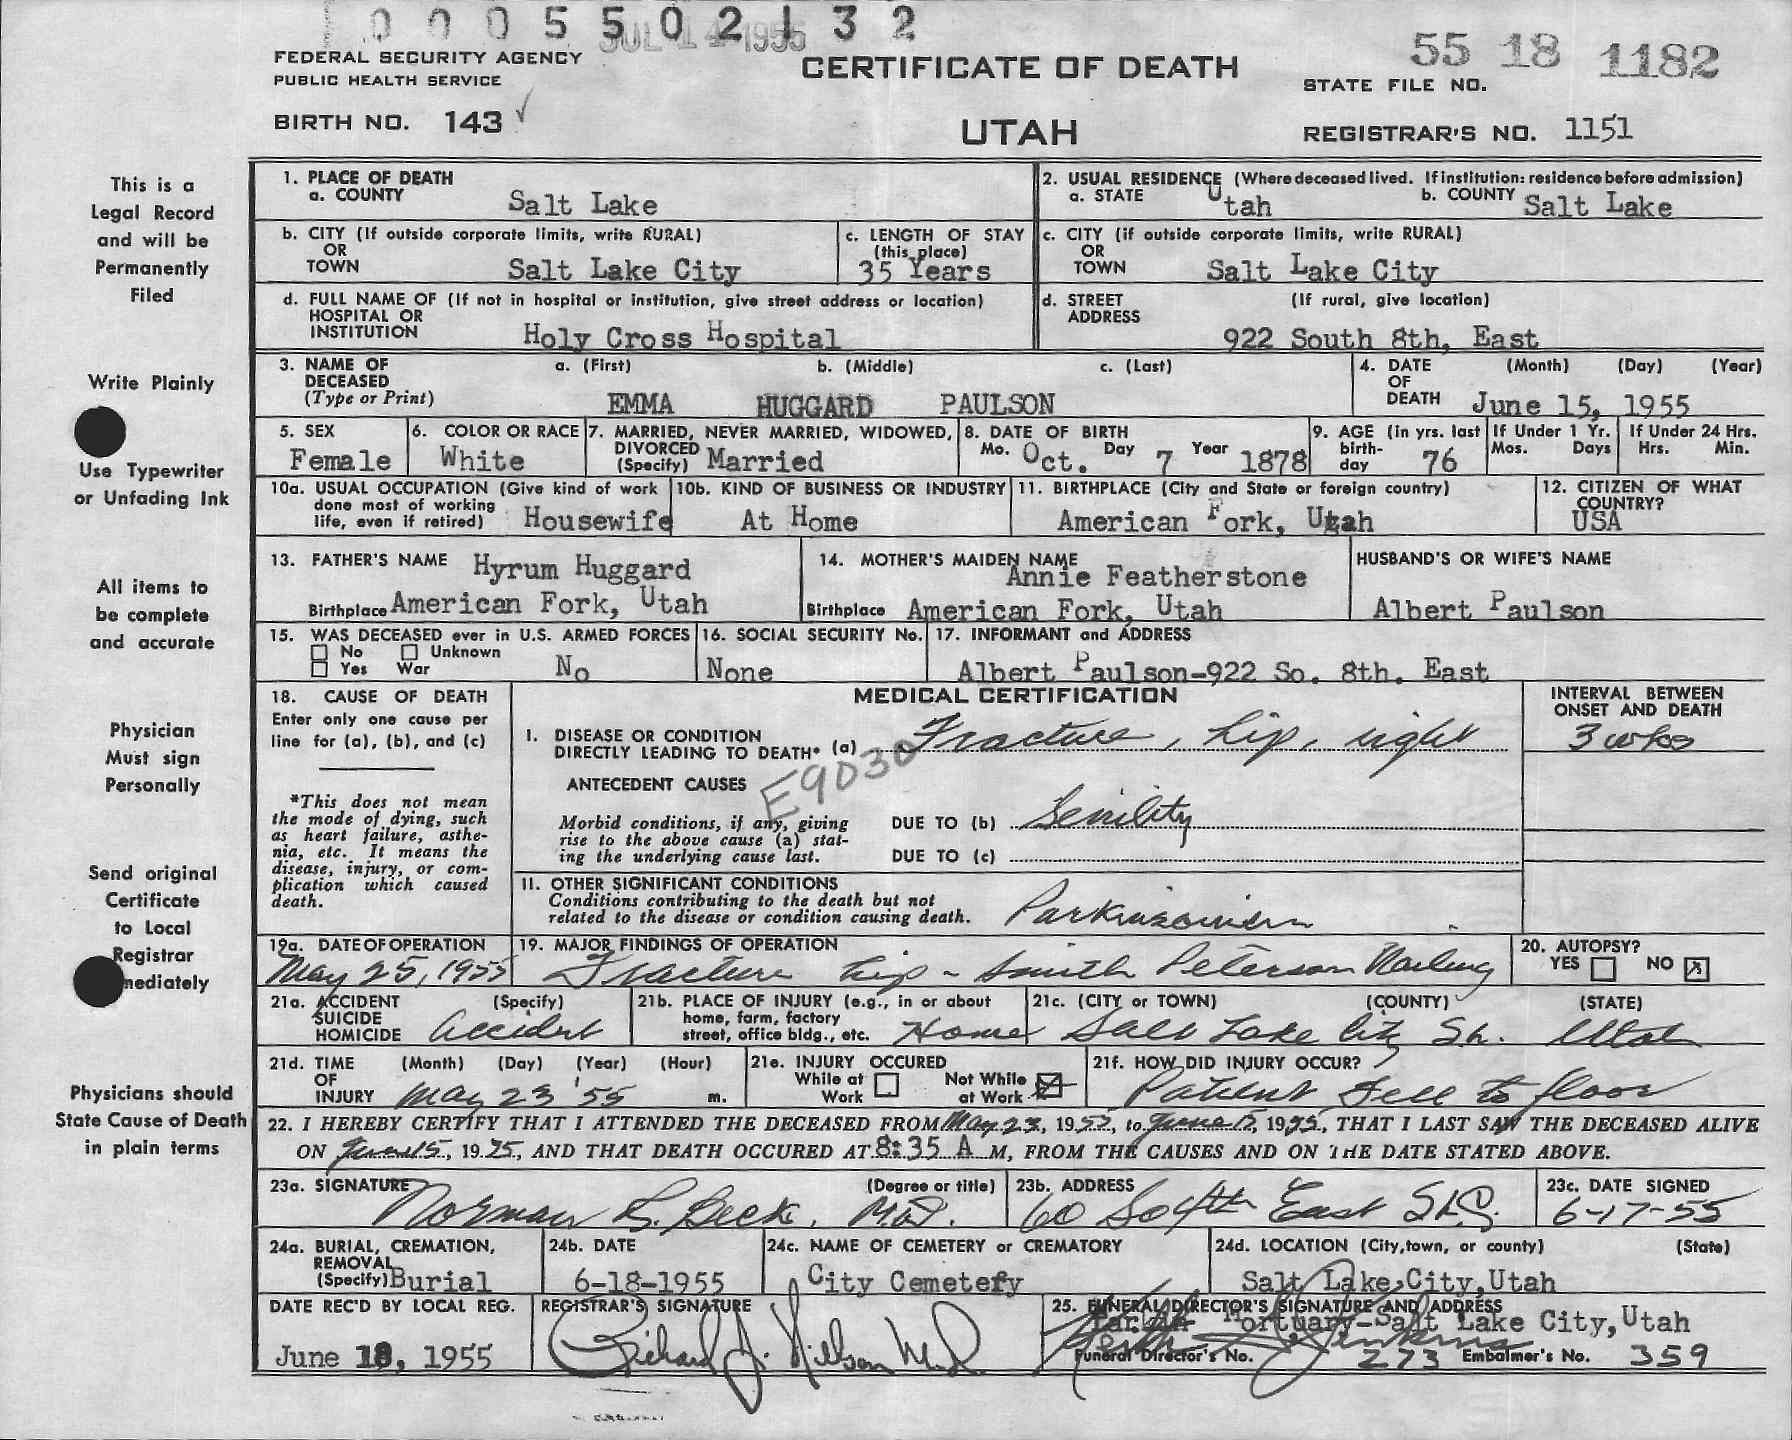 0005502132
JUL 14 1955
FEDERAL SECURITY AGENCY
PUBLIC HEALTH SERVICE
CERTIFICATE OF DEATH
55 18 1182
STATE FILE NO.
BIRTH NO. 143 ✓
UTAH
REGISTRAR'S NO. 1151
This is a
Legal Record
and will be
Permanently
Filed
Write Plainly
Use Typewriter
or Unfading Ink
All items to
be complete
and accurate
Physician
Must sign
Personally
Send original
Certificate
to Local
Registrar
mediately
Physicians should
State Cause of Death
in plain terms
1. PLACE OF DEATH
a. COUNTY Salt Lake
2. USUAL RESIDENCE (Where deceased lived. If institution: residence before admission)
a. STATE Utah b. COUNTY Salt Lake
b. CITY (If outside corporate limits, write RURAL)
OR
TOWN Salt Lake City
c. LENGTH OF STAY
(this place)
35 Years
c. CITY (if outside corporate limits, write RURAL)
OR
TOWN Salt Lake City
d. FULL NAME OF (If not in hospital or institution, give street address or location)
HOSPITAL OR
INSTITUTION Holy Cross Hospital
d. STREET (If rural, give location)
ADDRESS
922 South 8th, East
3. NAME OF a. (First) b. (Middle) c. (Last)
DECEASED
(Type or Print) EMMA HUGGARD PAULSON
4. DATE (Month) (Day) (Year)
OF
DEATH June 15, 1955
5. SEX
Female
6. COLOR OR RACE
White
7. MARRIED, NEVER MARRIED, WIDOWED,
DIVORCED
(Specify) Married
8. DATE OF BIRTH
Mo. Oct. Day 7 Year 1878
9. AGE (in yrs. last
birth-
day 76
If Under 1 Yr.
Mos. Days
If Under 24 Hrs.
Hrs. Min.
10a. USUAL OCCUPATION (Give kind of work
done most of working
life, even if retired) Housewife
10b. KIND OF BUSINESS OR INDUSTRY
At Home
11. BIRTHPLACE (City and State or foreign country)
American Fork, Utah
12. CITIZEN OF WHAT
COUNTRY?
USA
13. FATHER'S NAME Hyrum Huggard
Birthplace American Fork, Utah
14. MOTHER'S MAIDEN NAME
Annie Featherstone
Birthplace American Fork, Utah
HUSBAND'S OR WIFE'S NAME
Albert Paulson
15. WAS DECEASED ever in U.S. ARMED FORCES
No Unknown
Yes War No
16. SOCIAL SECURITY No.
None
17. INFORMANT and ADDRESS
Albert Paulson-922 So. 8th. East
18. CAUSE OF DEATH
Enter only one cause per
line for (a), (b), and (c)
*This does not mean
the mode of dying, such
as heart failure, asthe-
nia, etc. It means the
disease, injury, or com-
plication which caused
death.
MEDICAL CERTIFICATION
INTERVAL BETWEEN
ONSET AND DEATH
I. DISEASE OR CONDITION
DIRECTLY LEADING TO DEATH* (a) Fracture, hip, right
3 wks
E9030
ANTECEDENT CAUSES
Morbid conditions, if any, giving
rise to the above cause (a) stat-
ing the underlying cause last.
DUE TO (b) Senility
DUE TO (c)
11. OTHER SIGNIFICANT CONDITIONS
Conditions contributing to the death but not
related to the disease or condition causing death. Parkinsonism
19a. DATE OF OPERATION
May 25, 1955
19. MAJOR FINDINGS OF OPERATION
Fracture hip - Smith Peterson Nailing
20. AUTOPSY?
YES NO X
21a. ACCIDENT (Specify)
SUICIDE
HOMICIDE Accident
21b. PLACE OF INJURY (e.g., in or about
home, farm, factory
street, office bldg., etc. Home
21c. (CITY or TOWN) (COUNTY) (STATE)
Salt Lake City S.L. Utah
21d. TIME (Month) (Day) (Year) (Hour)
OF
INJURY May 23 '55 m.
21e. INJURY OCCURED
While at Work
Not While at Work
21f. HOW DID INJURY OCCUR?
Patient fell to floor
22. I HEREBY CERTIFY THAT I ATTENDED THE DECEASED FROM May 23, 1955, to June 15, 1955, THAT I LAST SAW THE DECEASED ALIVE
ON June 15, 1955, AND THAT DEATH OCCURED AT 8:35 A M, FROM THE CAUSES AND ON THE DATE STATED ABOVE.
23a. SIGNATURE (Degree or title)
Norman R. Beck, M.D.
23b. ADDRESS
60 So 4th East S.L.C.
23c. DATE SIGNED
6-17-55
24a. BURIAL, CREMATION,
REMOVAL
(Specify) Burial
24b. DATE
6-18-1955
24c. NAME OF CEMETERY or CREMATORY
City Cemetery
24d. LOCATION (City, town, or county) (State)
Salt Lake City, Utah
DATE REC'D BY LOCAL REG.
June 18, 1955
REGISTRAR'S SIGNATURE
Richard J. Nilson M.D.
25. FUNERAL DIRECTOR'S SIGNATURE AND ADDRESS
Mortuary-Salt Lake City, Utah
Funeral Director's No. 273 Embalmer's No. 359